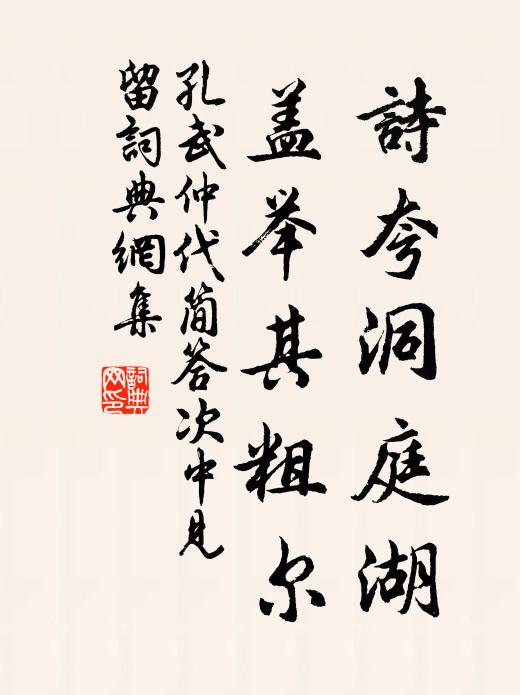 詩夸洞庭湖
盖举其粗尔
孔武仲代简答次中見
留詞典網集
詞典网印